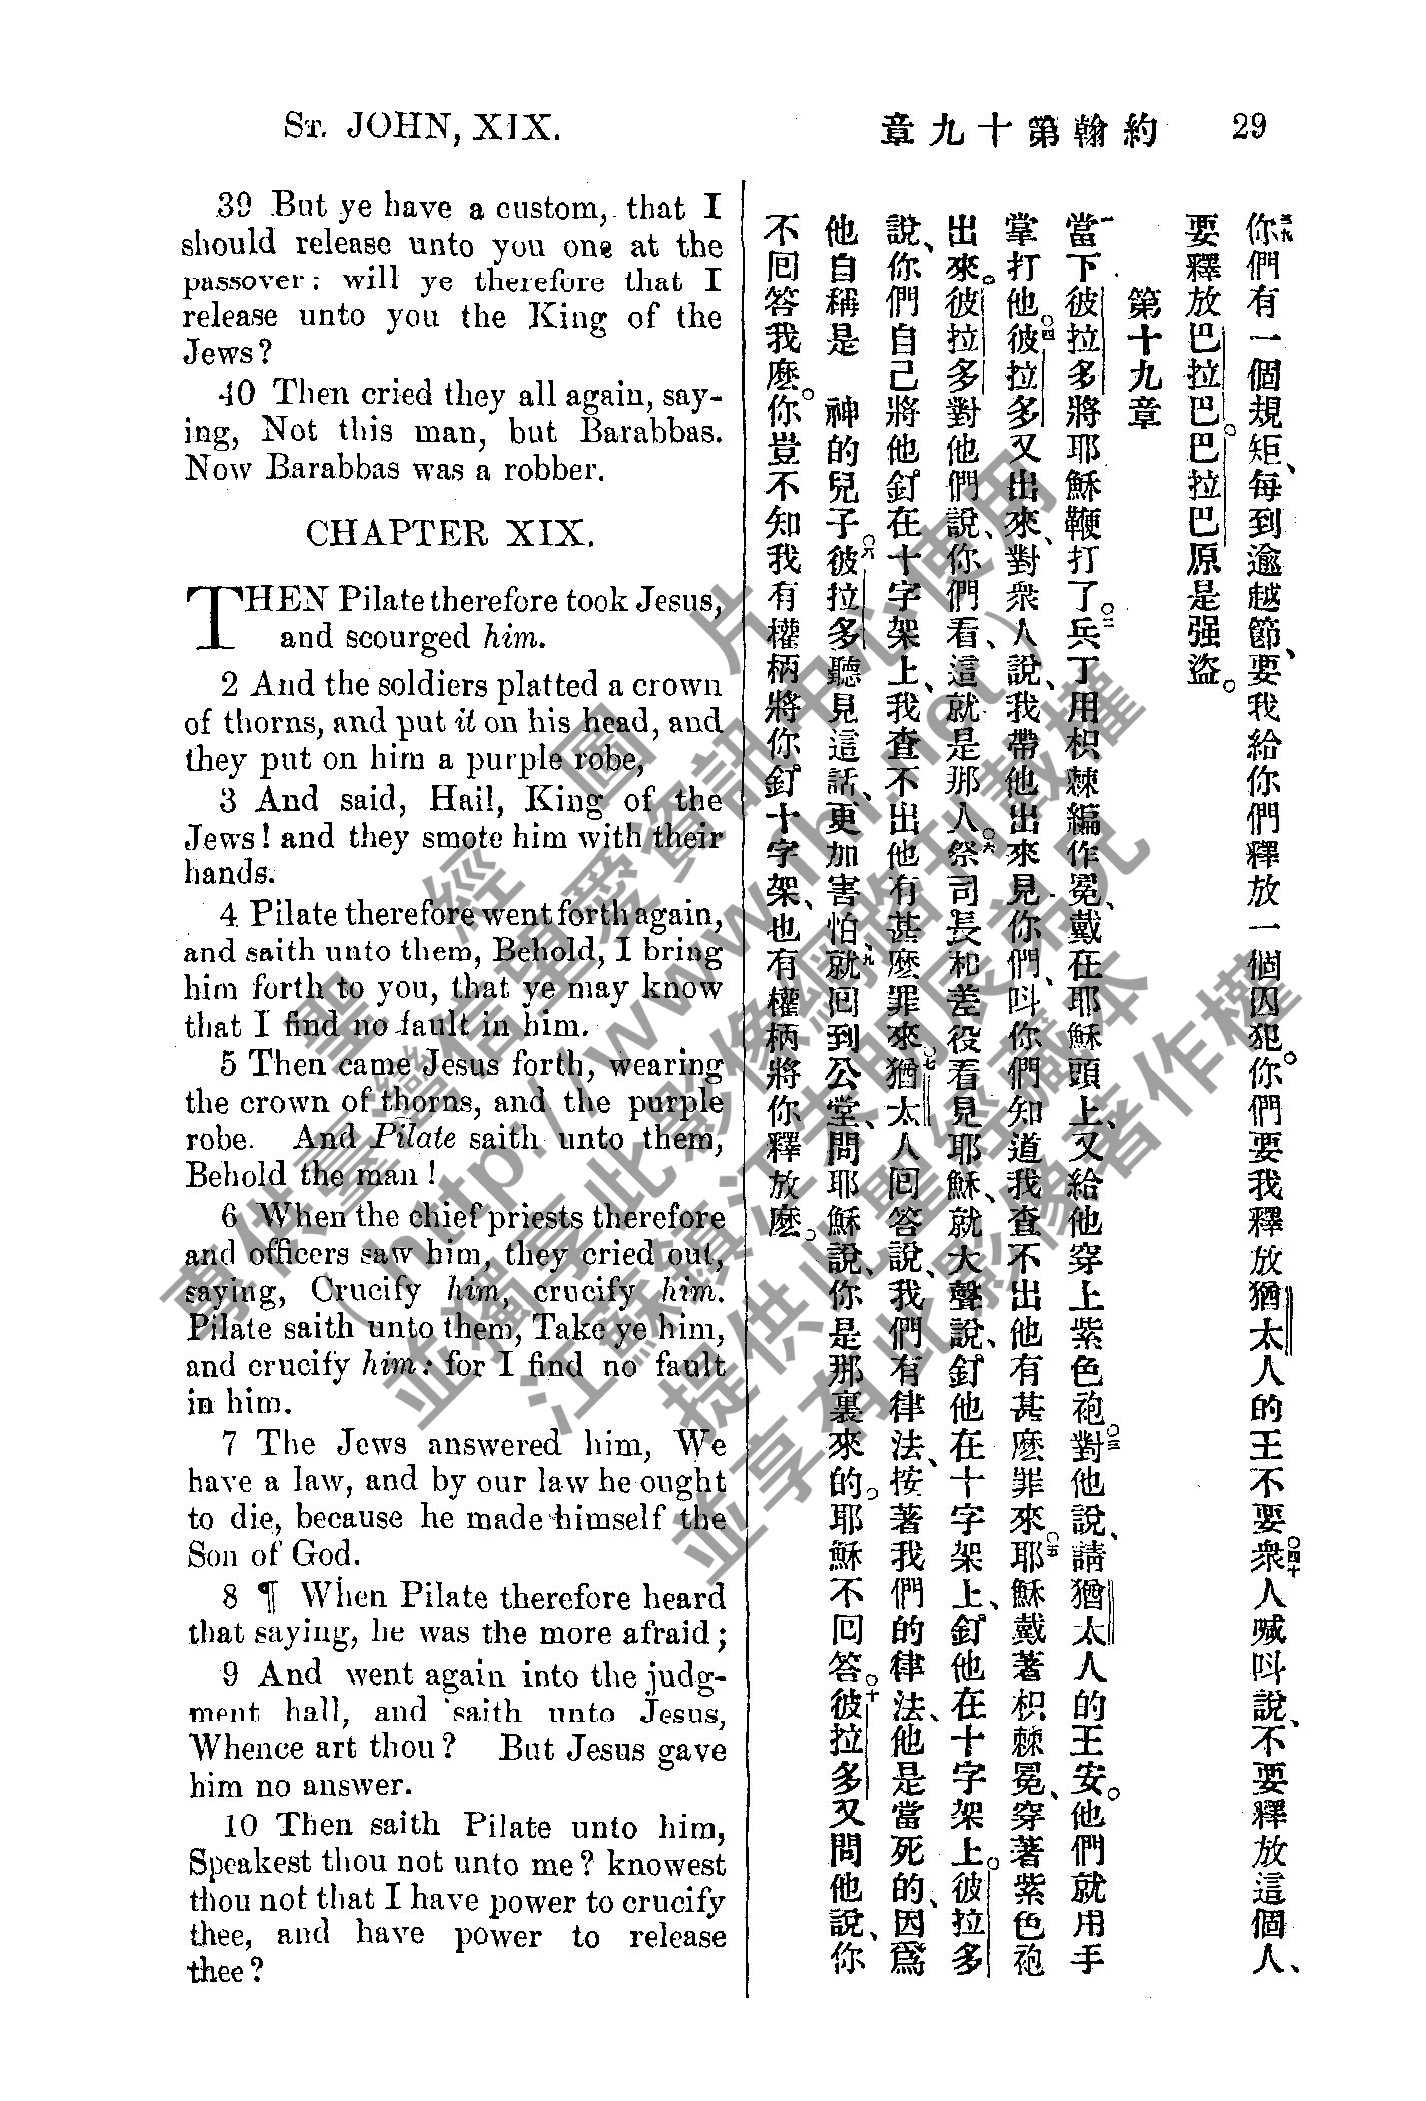 St. JOHN, XIX.
章九十第翰約
29
39 But ye have a custom, that I
should release unto you one at the
passover: will ye therefore that I
release unto you the King of the
Jews?
40 Then cried they all again, say-
ing, Not this man, but Barabbas.
Now Barabbas was a robber.
CHAPTER XIX.
THEN Pilate therefore took Jesus,
and scourged him.
2 And the soldiers platted a crown
of thorns, and put it on his head, and
they put on him a purple robe,
3 And said, Hail, King of the
Jews! and they smote him with their
hands.
4 Pilate therefore went forth again,
and saith unto them, Behold, I bring
him forth to you, that ye may know
that I find no fault in him.
5 Then came Jesus forth, wearing
the crown of thorns, and the purple
robe. And Pilate saith unto them,
Behold the man!
6 When the chief priests therefore
and officers saw him, they cried out,
saying, Crucify him, crucify him.
Pilate saith unto them, Take ye him,
and crucify him: for I find no fault
in him.
7 The Jews answered him, We
have a law, and by our law he ought
to die, because he made himself the
Son of God.
8 ¶ When Pilate therefore heard
that saying, he was the more afraid;
9 And went again into the judg-
ment hall, and saith unto Jesus,
Whence art thou? But Jesus gave
him no answer.
10 Then saith Pilate unto him,
Speakest thou not unto me? knowest
thou not that I have power to crucify
thee, and have power to release
thee?
三九你們有一個規矩、每到逾越節、要我給你們釋放一個囚犯。你們要我釋放猶太人的王不要。四十衆人喊呌說、不要釋放這個人、
要釋放巴拉巴。巴拉巴原是强盜。
第十九章
一當下彼拉多將耶穌鞭打了。二兵丁用枳棘編作冕、戴在耶穌頭上、又給他穿上紫色袍。三對他說、請猶太人的王安。他們就用手
掌打他。四彼拉多又出來、對衆人說、我帶他出來見你們、呌你們知道我查不出他有甚麽罪來。五耶穌戴著枳棘冕、穿著紫色袍
出來。彼拉多對他們說、你們看、這就是那人。六祭司長和差役看見耶穌、就大聲說、釘他在十字架上、釘他在十字架上。彼拉多
說、你們自己將他釘在十字架上、我查不出他有甚麽罪來。七猶太人囘答說、我們有律法、按著我們的律法、他是當死的、因爲
他自稱是 神的兒子。八彼拉多聽見這話、更加害怕、九就囘到公堂、問耶穌說、你是那裏來的。耶穌不囘答。十彼拉多又問他說、你
不囘答我麽。你豈不知我有權柄將你釘十字架、也有權柄將你釋放麽。
聖經圖片
專供臺灣信望愛資訊中心使用
( http://www.fhl.net )
並獨享此影像網路刊載權
江蘇鎮江朱明辰弟兄
提供此聖經藏本
並享有此影像著作權